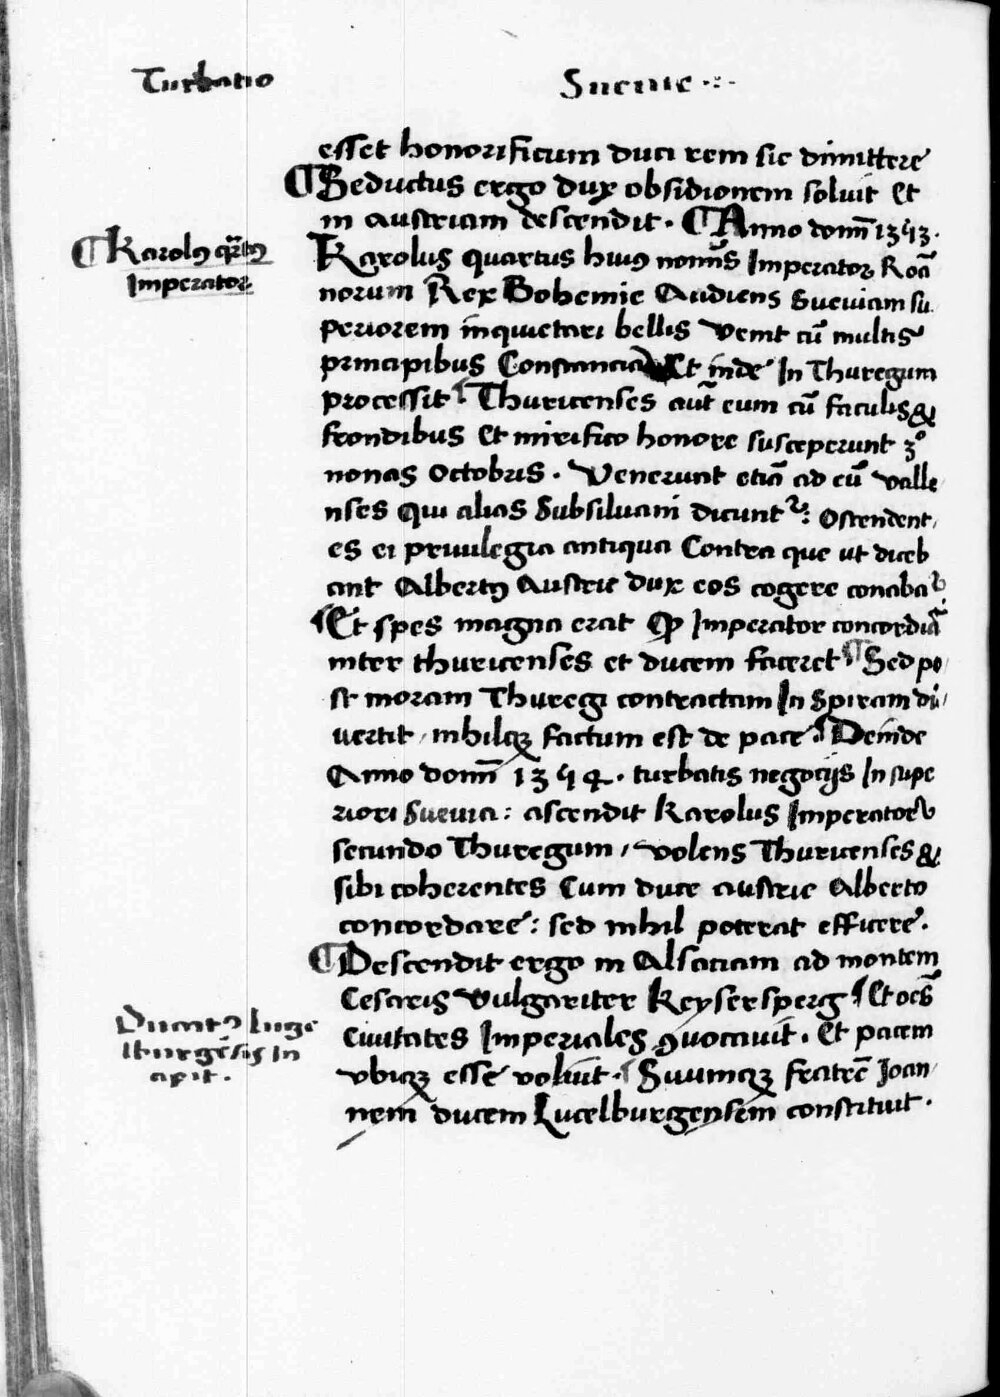 Turbatio Sueuie
esset honorificum duci rem sic dimittere
¶ Seductus ergo dux obsidionem soluit et
in austriam descendit. ¶ Anno domī 1353.
¶ Karolꝰ qr̄tꝰ
Imperator
Karolus quartus huiꝰ nomīs Imperator Roā
norum Rex Bohemie Audiens Sueuiam su
periorem inquietari bellis venit cū multis
principibus Constanciā Et inde In Thuregum
processit ¶ Thuricenses aūt eum cū faculis &
frondibus et mirifico honore susceperunt 3°
nonas Octobris. Venerunt etiā ad eū valle
nses qui alias Subsiluani dicuntr: Ostendent
es ei priuilegia antiqua Contra que ut diceb
ant Albertꝰ Austrie dux eos cogere conabar
¶ Et spes magna erat ꝙ Imperator concordiā
inter thuricenses et ducem faceret ¶ Sed po
st moram Thuregi contractam In Spiram di
uertit, nihilqꝫ factum est de pace. ¶ Deinde
Anno domī 1354. turbatis negocijs In supe
riori Sueuia: ascendit Karolus Imperator
secundo Thuregum, volens Thuricenses &
sibi coherentes Cum duce austrie Alberto
concordare: sed nihil poterat efficere.
¶ Descendit ergo in Alsaciam ad montem
Cesaris vulgariter Keysersperg ¶ Et oēs
Ciuitates Imperiales ꝯuocauit. Et pacem
Ducatꝰ luge
lburgēsis In
cipit.
vbiqꝫ esse voluit. ¶ Suumqꝫ fratrē Joan
nem ducem Lucelburgensem constituit.